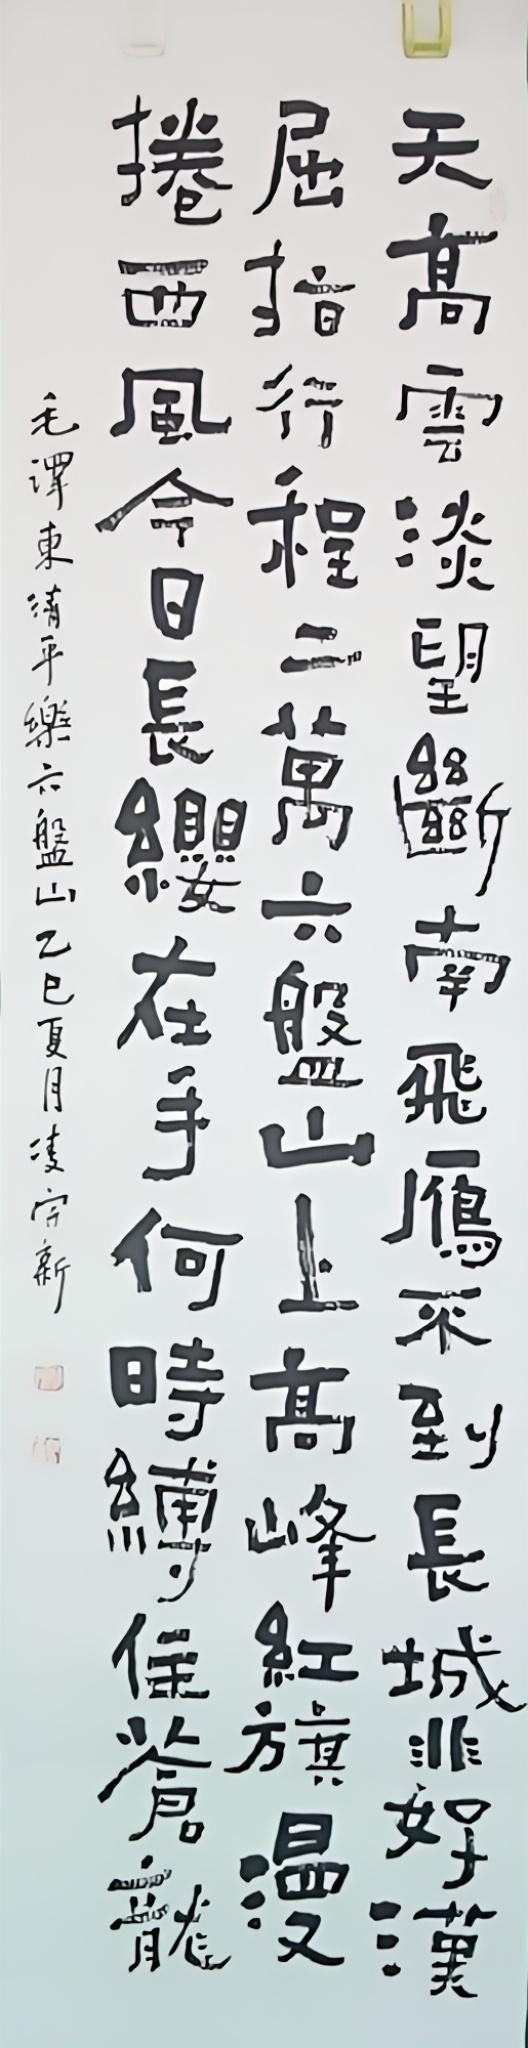 天高雲淡望斷南飛鴈不到長城非好漢
屈指行程二萬六盤山上高峰紅旗漫
捲西風今日長纓在手何時縛住蒼龍
毛澤東清平樂六盤山乙巳夏月凌宗新